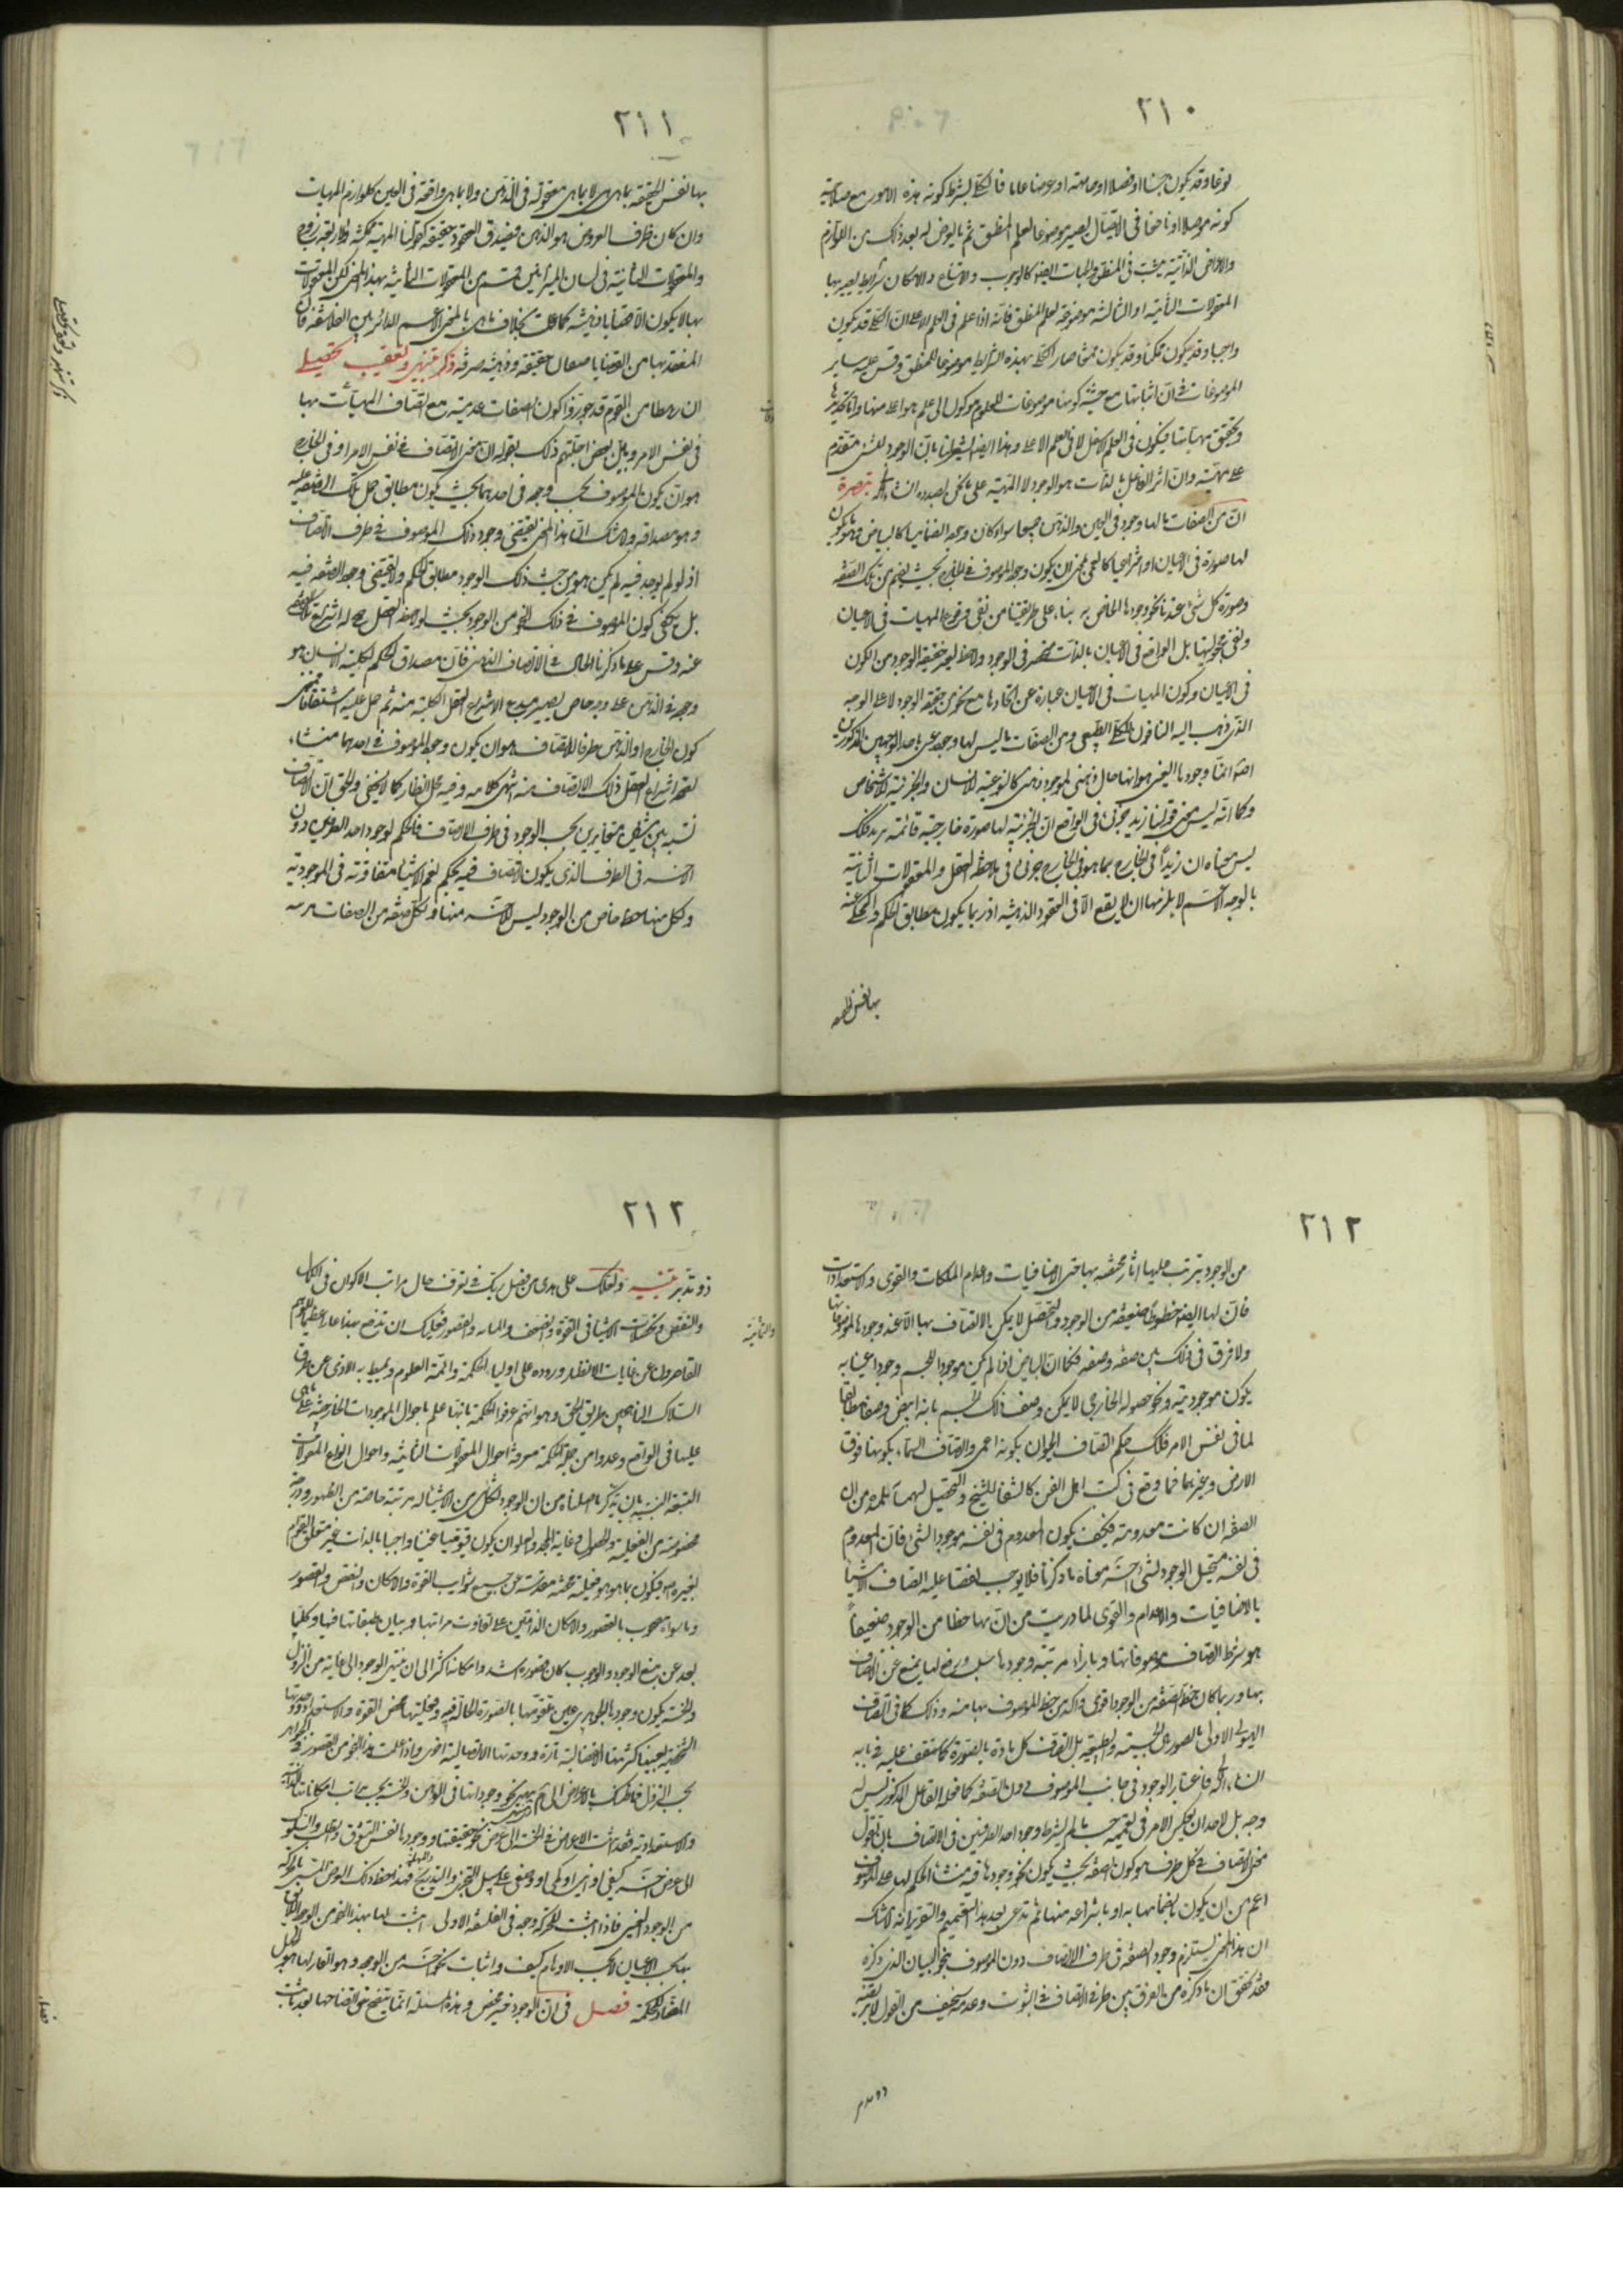 ٢١٠
نوعا وقد يكون جنسا او فصلا او خاصة او عرضا عاما فالكلى بشرط كونه هذه الامور مع صلاحية
كونه موصلا او نافعا فى الايصال يصير موضوعا لعلم المنطق ثم ما يعرض له بعد ذلك من اللوازم
والاعراض الذاتية يثبت فى المنطق والجهات ايضا كالوجوب والامتناع والامكان شرايط يصير بها
المعقولات الثانية او الثالثة موضوعة لعلم المنطق فانه اذا علم فى العلم الاعلى ان الكلى قد يكون
واجبا وقد يكون ممكنا وقد يكون ممتنعا صار الكلى بهذه الشرايط موضوعا للمنطق وقس عليه ساير
الموضوعات فى ان اثباتها مع حيثية كونها موضوعات للعلوم موكول الى علم هو اعلى منها واما تحديدها
وتحقيق مهياتها فيكون فى العلم الاسفل لا فى العلم الاعلى وهذا ايضا يشير الى ان الوجود للشئ متقدم
على مهيته وان اثر الفاعل بالذات هو الوجود لا المهية على ما نحن بصدده ان شاء الله تبصرة
ان من الصفات ما لها وجود فى العين والذهن جميعا سواء كان وجوده انضماميا كالبياض وهو ما يكون
لها صورة فى الاعيان او انتزاعيا كالعمى بمعنى ان يكون وجود الموصوف فى الخارج بحيث يفهم منه تلك الصفة
وصورة كل شئ عندنا نحو وجودها الخاص به بناء على طريقتنا من نفى وقوع المهيات فى الاعيان
ونفى مجعوليتها بل الواقع فى الاعيان بالذات منحصر فى الوجود ولاحظ لغير حقيقة الوجود من الكون
فى الاعيان وكون المهيات فى الاعيان عبارة عن اتحادها مع نحو من حقيقة الوجود لا على الوجه
الذى ذهب اليه النافون للكلى الطبيعى ومن الصفات ما ليس لها وجود عينى باحد الوجهين المذكورين
اصلا انما وجودها العينى هو انها حال ذهنى لموجود ذهنى كالنوعية للانسان والجزئية للاشخاص
وكما انه ليس معنى قولنا زيد جزئى فى الواقع ان الجزئية لها صورة خارجية قائمة بزيد فكذلك
ليس معناه ان زيدا فى الخارج بما هو فى الخارج جزئى فى ملاحظة العقل والمعقولات الثانية
بالوجه الاعم لا يلزمها ان لا يقع الا فى العقود الذهنية اذ ربما يكون مطابق الحكم والمحكى عنه
بها نفس الحقيقة
٢١١
بها نفس الحقيقة بما هى هى لا بما هى معقولة فى الذهن ولا بما هى واقعة فى العين كلوازم المهيات
وان كان ظرف العروض هو الذهن فيصدق العقود حقيقة كقولنا المهية ممكنة والاربعة زوج
والمعقولات الثانية فى لسان الميزانيين قسم من المعقولات الثانية بهذا المعنى لكون المعقولات
بها لا يكون الا قضايا ذهنية كما علمت بخلاف ما هى بالمعنى الاعم الدائر بين الفلاسفة فان
المنعقد بها من القضايا صنفان حقيقة وذهنية صرفة ذكر تنبيهى وتعقيب تحصيلى
ان رهطا من القوم قد جوزوا كون الصفات عدمية مع اتصاف المهيات بها
فى نفس الامر وبين بعض اجلتهم ذلك بقوله ان معنى الاتصاف فى نفس الامر او فى الخارج
هو ان يكون الموصوف بحسب وجوده فى احدهما بحيث يكون مطابق حمل تلك الصفة عليه
وهو مصداقه ولا شك ان هذا المعنى يقتضى وجود ذلك الموصوف فى ظرف الاتصاف
اذ لو لم يوجد فيه لم يكن هو من حيث ذلك الوجود مطابق الحكم ولا يقتضى وجود الصفة فيه
بل يكفى كون الموصوف فى ذلك النحو من الوجود بحيث لو لاحظه العقل صح له انتزاع تلك الصفة
عنه وقس على ما ذكرنا الحال فى الاتصاف الذهنى فان مصداق الحكم بكلية الانسان هو
وجوده فى الذهن على وجه خاص يصير مبدء لانتزاع العقل الكلية منه ثم حمل عليه اشتقاقا فمعنى
كون الخارج او الذهن ظرفا للاتصاف هو ان يكون وجود الموصوف فى احدهما منشاء
لصحة انتزاع العقل ذلك الاتصاف منه انتهى كلامه وفيه محل انظار كما لا يخفى والحق ان الاتصاف
نسبة بين شيئين متغايرين بحسب الوجود فى ظرف الاتصاف فالحكم بوجود احد الطرفين دون
الاخر فى الظرف الذى يكون الاتصاف فيه تحكم نعم الاشياء متفاوتة فى الموجودية
ولكل منها حظ خاص من الوجود ليس للاخر منها فلكل صفة من الصفات مرتبة
٢١٢
من الوجود يترتب عليها آثار مختصة بها حتى الاضافيات واعدام الملكات والقوى والاستعدادات
فان لها ايضا حظوظا ضعيفة من الوجود والتحصل لا يمكن الاتصاف بها الا عند وجودها لموصوفاتها
ولا فرق فى ذلك بين صفة وصفة فكما ان البياض اذا لم يكن موجودا للجسم وجودا عينيا به
يكون موجوديته ونحو حصوله الخارجى لا يمكن وصف ذلك الجسم بانه ابيض وصفا مطابقا
لما فى نفس الامر فكذلك حكم اتصاف الحيوان بكونه اعمى واتصاف السماء بكونها فوق
الارض وغيرهما فما وقع فى كتب اهل الفن كالشفا للشيخ والتحصيل لبهمنيار تلميذه من ان
الصفة ان كانت معدومة فكيف يكون المعدوم فى نفسه موجودا لشئ فان المعدوم
فى نفسه مستحيل الوجود لشئ اخر معناه ما ذكرنا فلا يوجب نقضا عليه اتصاف الاشياء
بالاضافيات والاعدام والقوى لما دريت من ان لها حظا من الوجود ضعيفا
هو شرط اتصاف موصوفاتها وبازاء مرتبة وجودها سلب ورفع لها يمنع عن الاتصاف
بها وربما كان حظ الصفة من الوجود اقوى واكد من حظ الموصوف بها منه وذلك كما فى اتصاف
الهيولى الاولى بالصور الجسمية والطبيعية بل اتصاف كل مادة بالصورة كما ستقف عليه فى بابه
ان شاء الله فاعتبار الوجود فى جانب الموصوف دون الصفة كما فعله القائل المذكور ليس له
وجه بل لاحد ان يعكس الامر فى تعميمه حيث لم يشترط وجود احد الطرفين فى الاتصاف بان يقول
معنى الاتصاف فى كل ظرف هو كون الصفة بحيث يكون نحو وجودها فيه منشاء الحكم بها على الموصوف
اعم من ان يكون بانضمامها به او بانتزاعه منها ثم يدعى بعد هذا التعميم والتقرير انه لا شك
ان هذا المعنى يستلزم وجود الصفة فى ظرف الاتصاف دون الموصوف بنحو البيان الذى ذكره
فقد تحقق ان ما ذكره من الفرق بين طرفى الاتصاف فى الثبوت وعدمه سخيف من القول لا يرتضيه
ذو تدبر
٢١٣
ذو تدبر تنبيه ولعلك على هدى من فضل ربك فى تعرف حال مراتب الاكوان فى الكمال
والنقص وتحصلات الاشياء فى القوة والضعف والمتانة والقصور فعليك ان تدفع بهذا عارا عظيما يتوهم
القاصرون عن غايات الانظار وروده على اولياء الحكمة وائمة العلوم ويميط به الاذى عن طريق
السلاك الناهجين طريق الحق وهو انهم عرفوا الحكمة بانها علم باحوال الموجودات الخارجية على ما هى
عليها فى الواقع وعدوا من جملة الحكمة معرفة احوال المعقولات الثانية واحوال انواع المقولات
السبعة النسبية بان تذكر ما اصلناه من ان الوجود لكل شئ من الاشياء له مرتبة خاصة من الظهور ودرجة
مخصوصة من الفعلية والحصول وغاية المجد والعلو ان يكون قيوميا غنيا واجبا بالذات غير متعلق القوام
بغيره اصلا فيكون بما هو هو فعلية محضة مقدسة عن جميع شوايب القوة والامكان والنقص والقصور
وما سواه مصحوب بالقصور والامكان الذاتيين على تفاوت مراتبها وتباين طبقاتها فيهما وكلما
بعد عن منبع الوجود والوجوب كان قصوره اشد وامكانه اكثر الى ان ينتهى الوجود الى غاية من النزول
والخسة يكون وجودها الجوهرى عين تقومها بالصورة الحالة فيه وفعليتها محض القوة والاستعداد ووحدتها
الشخصية بعينها كثرتها الانفصالية تارة ووحدتها الاتصالية اخرى واذا علمت هذا النحو من القصور فى الجواهر
بحسب النزول فما ظنك بالاعراض الى اى غاية ونحو وجوداتها فى الوهن والخسة بحسب مراتب امكاناتها الذاتية
والاستعدادية فقد انتهت الاعراض فى الخسة الى عرض نحو حقيقتها ووجودها نفس التشوق والطلب والسلوك
الى عرض اخر كيفى او اينى او كمى او وضعى على سبيل التجزى والتدريج فهذا حظ ذلك العرض المسمى بالحركة
من الوجود العينى فاذا اثبت للحركة وجود فى الفلسفة الاولى اثبت لها بهذا النحو من الوجود اللايق
بها بحسب الاعيان لا بحسب الاوهام كيف واثبات نحو اخر من الوجود وهو القار لها هو الجهل
المضاد للحكمة فصل فى ان الوجود خير محض وهذه المسئلة انما يتضح حق اتضاحها بعد ما ثبت